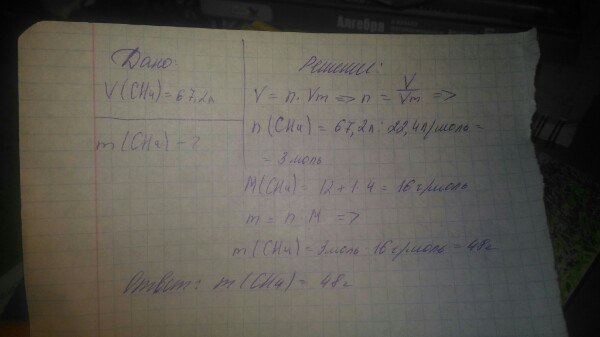 Алгебра
Дано:
V(CH₄) = 67,2л
m(CH₄) - ?
Решение:
V = n · Vm => n = V/Vm =>
n(CH₄) = 67,2л : 22,4л/моль =
= 3 моль
M(CH₄) = 12 + 1 · 4 = 16 г/моль
m = n · M =>
m(CH₄) = 3моль · 16 г/моль = 48г
Ответ: m(CH₄) = 48г